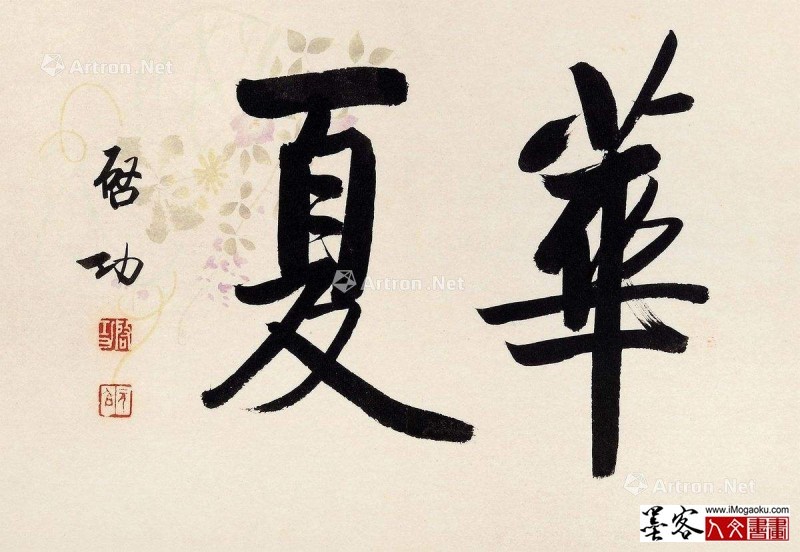 華夏
啓功
Artron.Net
Artron.Net
Artron.Net
墨客
www.iMogaoku.com
人文書畫